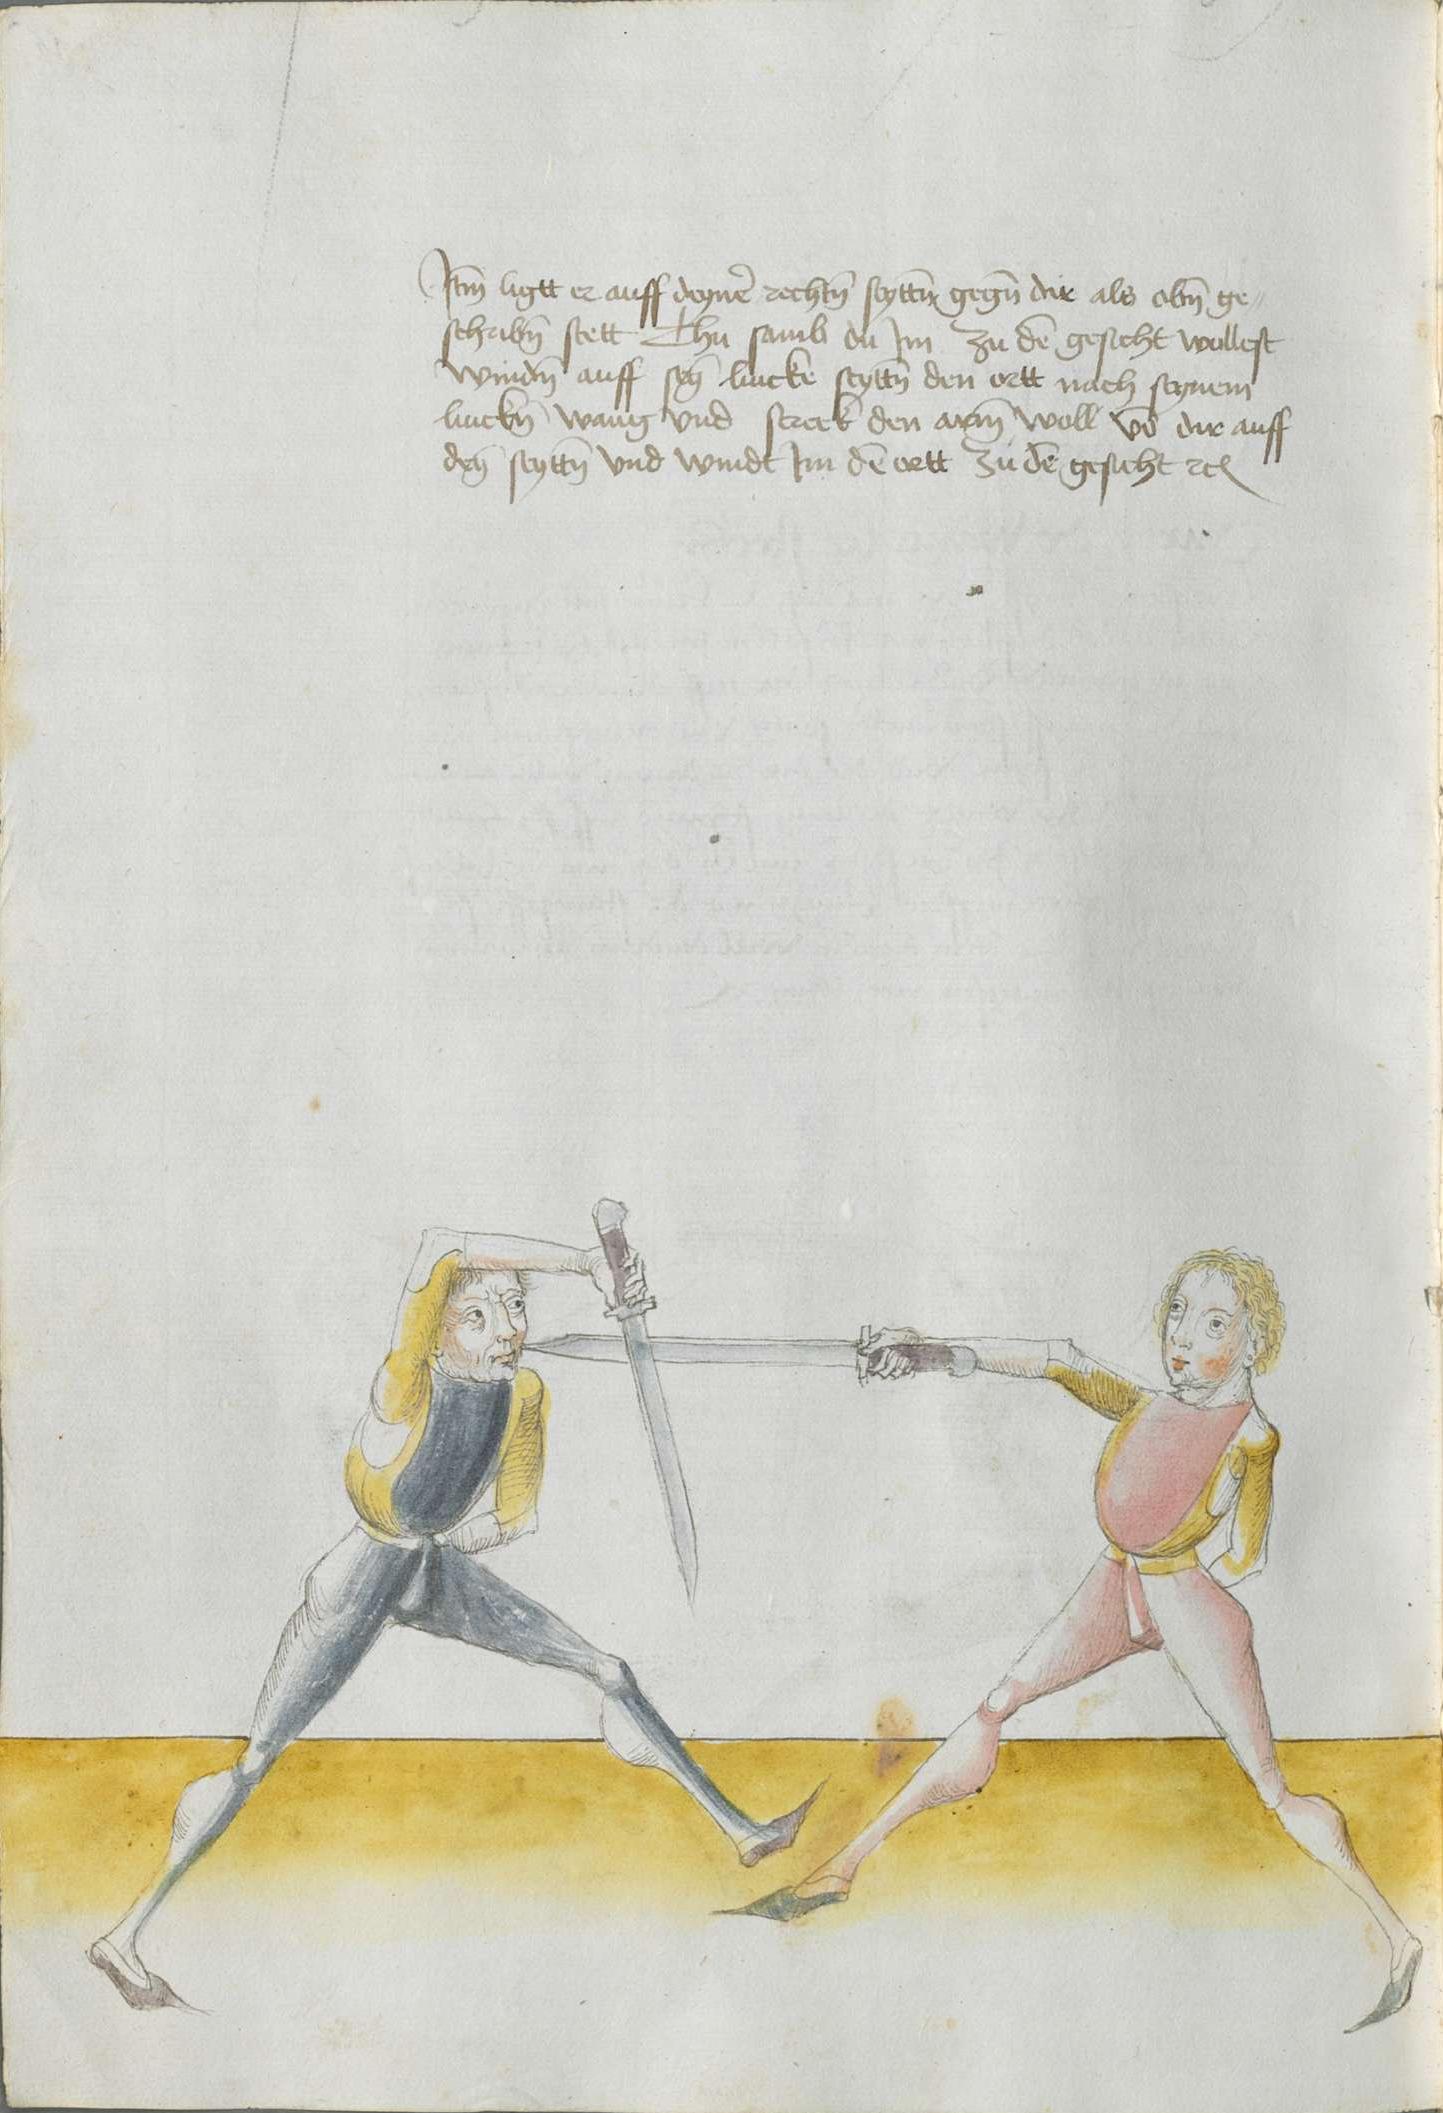 Itm̄ ligtt er auff deynē rechtn̄ seyttn̄ gegn̄ dir als obn̄ ge〃
schribn̄ stett Thu samb du Im zu dē gesicht wollest
windn̄ auff seȳ lincke seyttn̄ den ortt nach seynem
linckn̄ wang Vnd streck den arm̄ woll vō dir auff
deȳ seyttn̄ Vnd windt Im dē ortt zu dē gesicht ꝛcꝭ